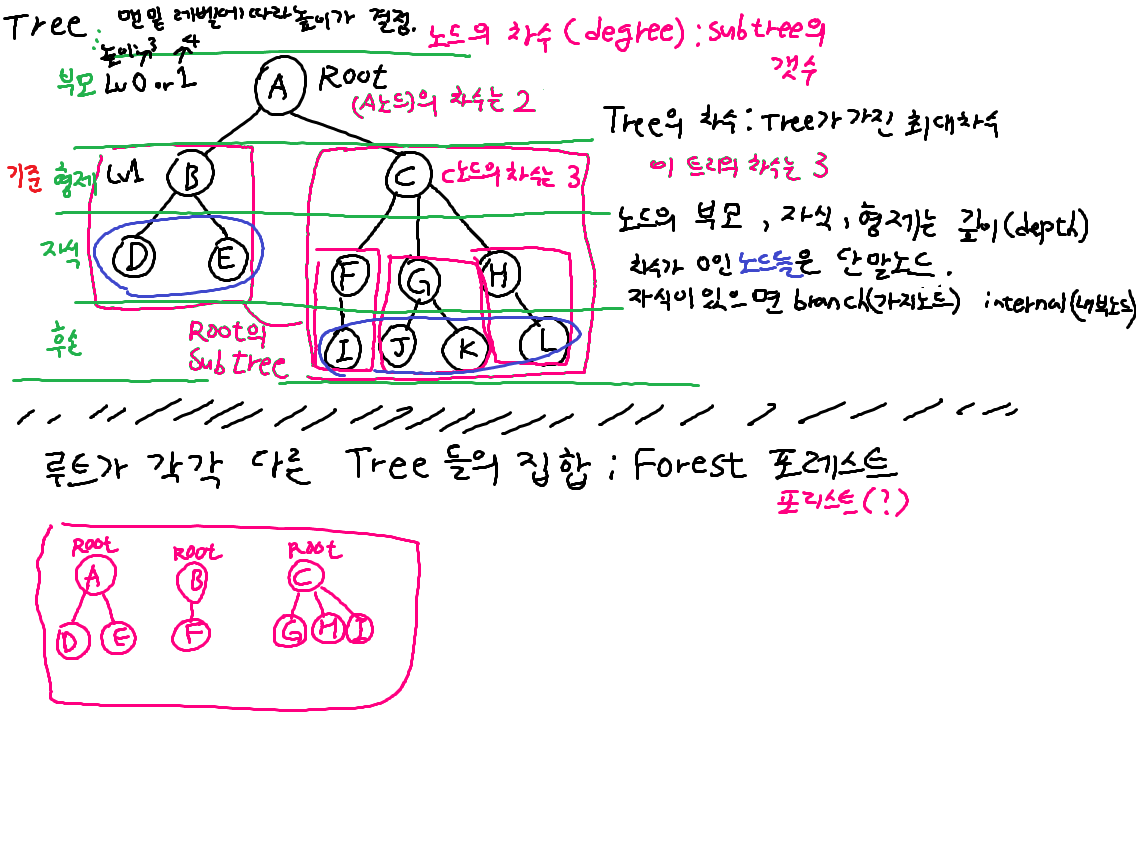 Tree : 맨 밑 레벨에 따라 높이가 결정.
높이: 3 4
노드의 차수 (degree) : subtree의
갯수
부모 Lv 0 or 1
A Root
(A노드)의 차수는 2
Tree의 차수 : Tree가 가진 최대차수
이 트리의 차수는 3
기준 형제 Lv1 B C C노드의 차수는 3
노드의 부모, 자식, 형제는 깊이(depth)
자식 D E F G H
차수가 0인 노드들은 단말노드.
자식이 있으면 branch(가지노드) internal(내부노드)
후손 I J K L
Root의
Subtree
루트가 각각 다른 Tree들의 집합 ; Forest 포레스트
포리스트(?)
Root Root Root
A B C
D E F G H I